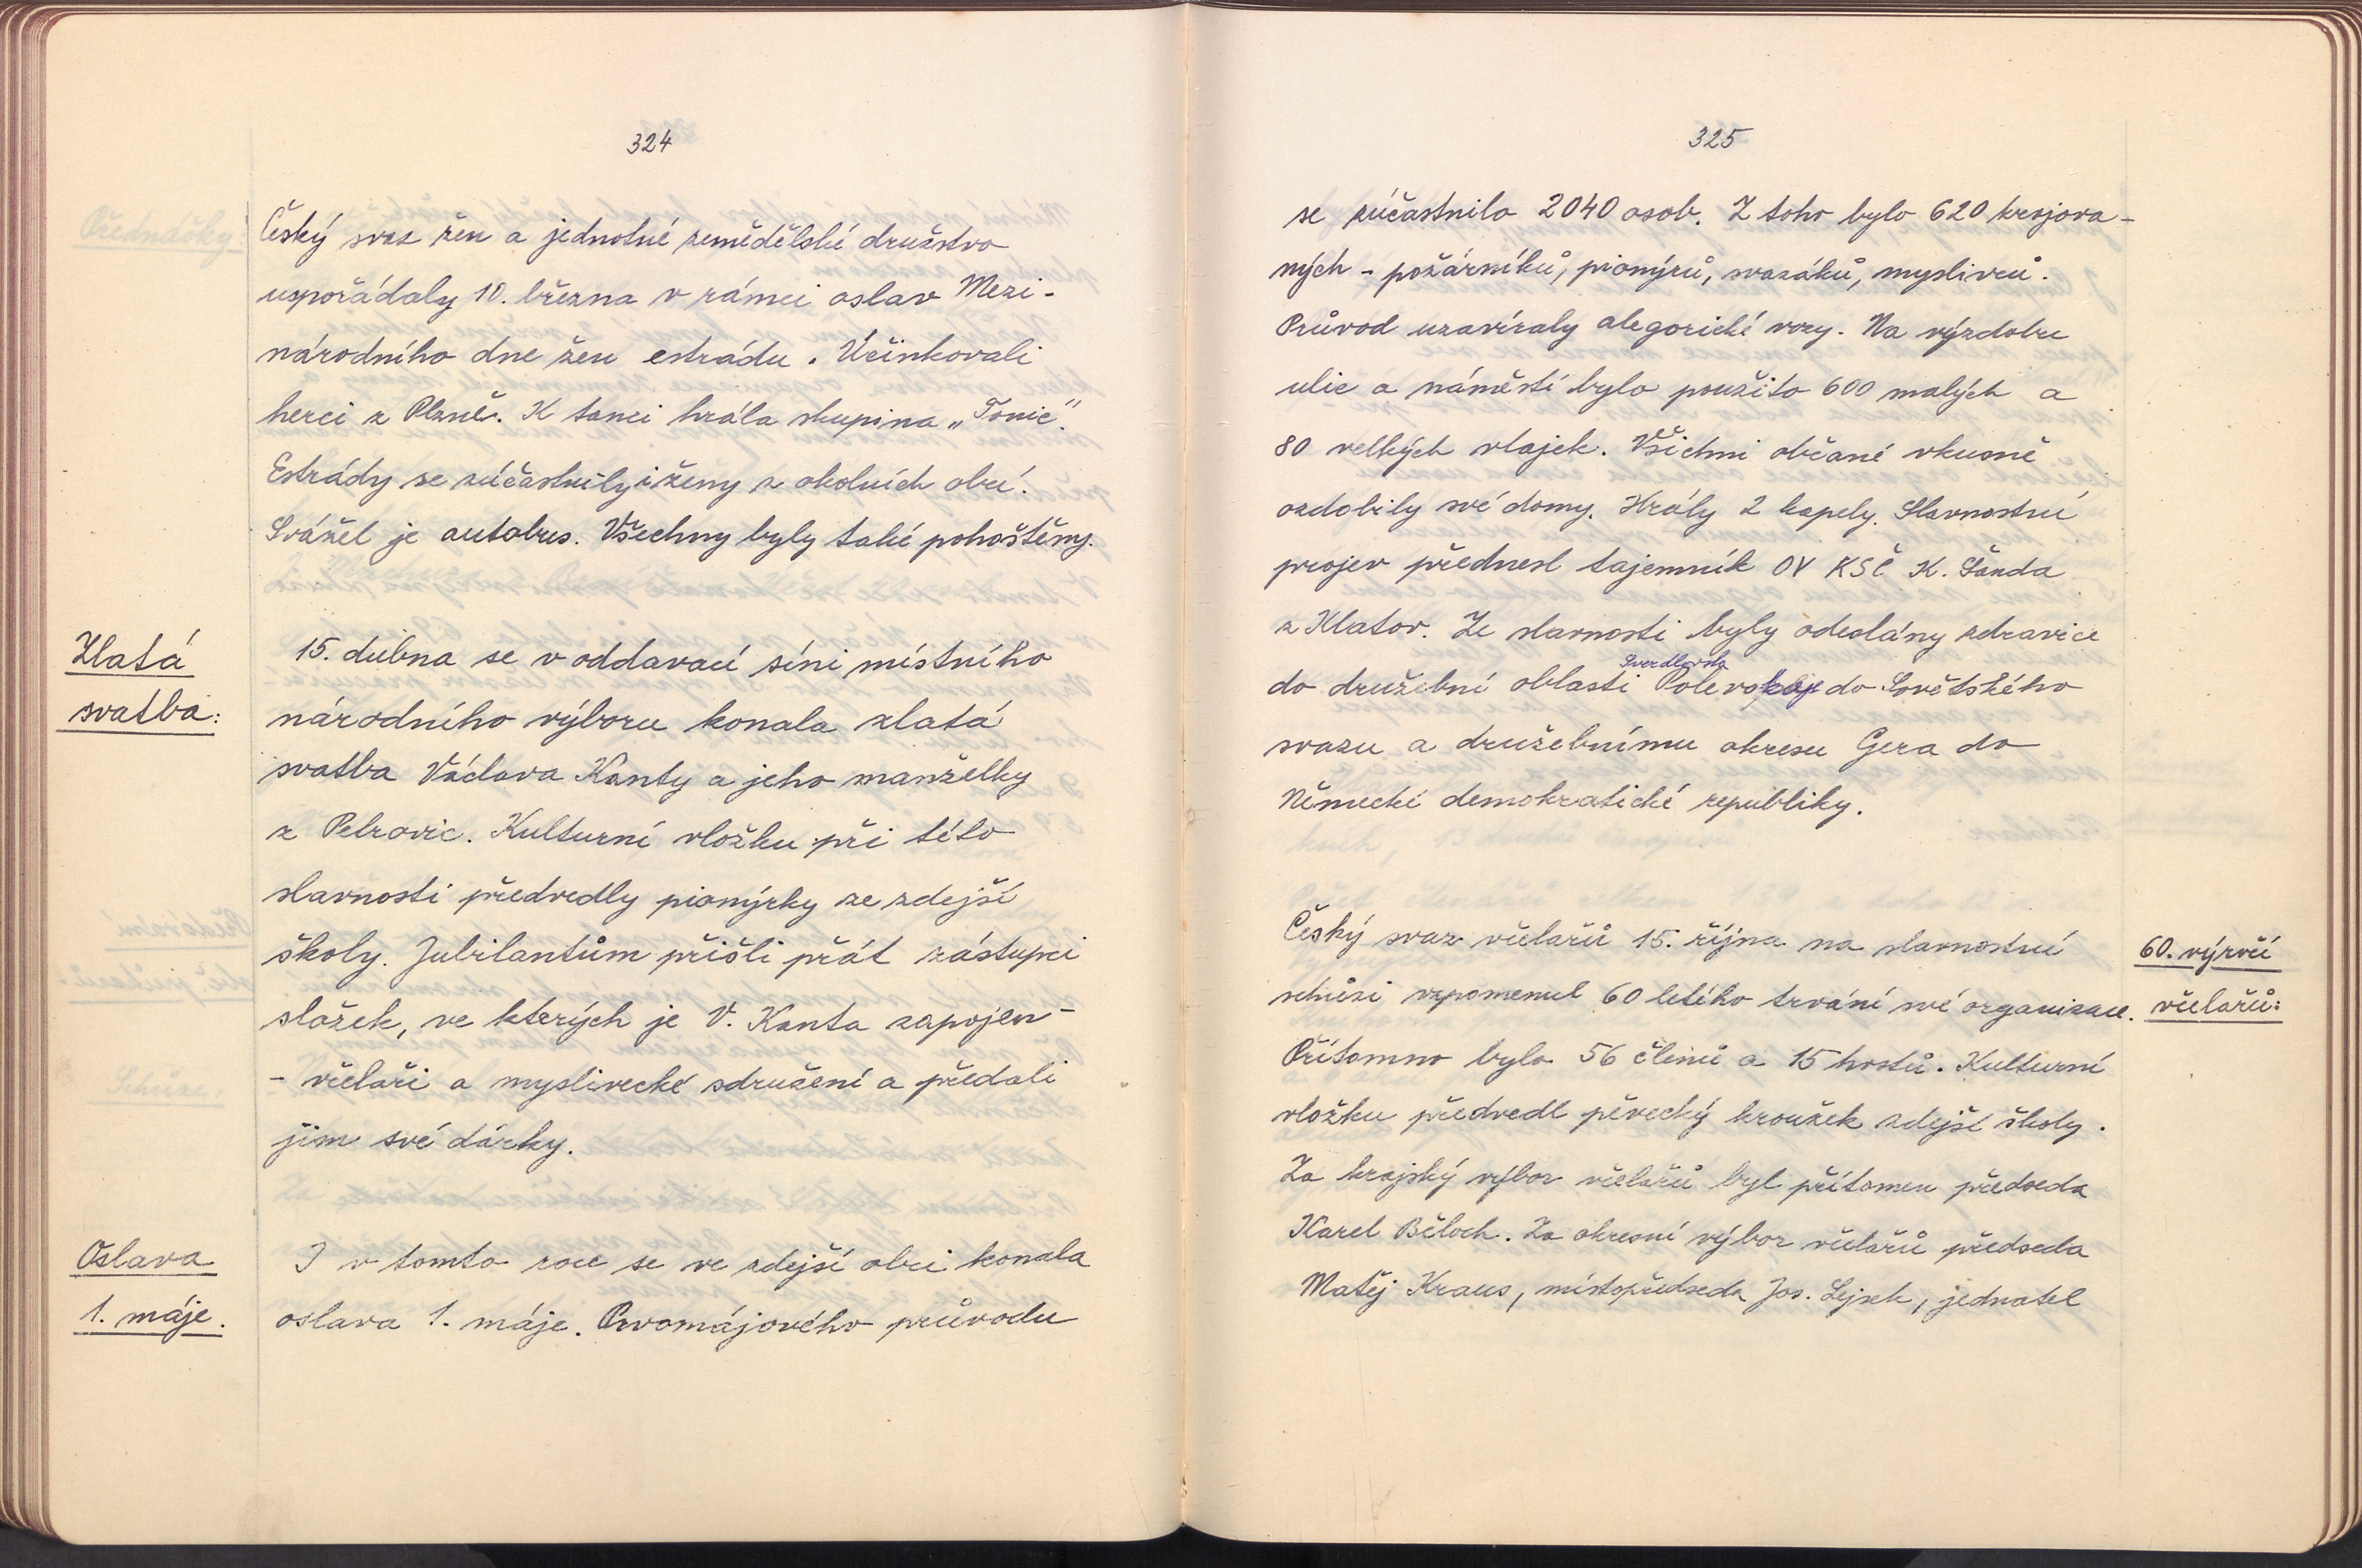 324
Český svaz žen a jednotné zemědělské družstvo
uspořádaly 10. března v rámci oslav Mezi-
národního dne žen estrádu. Účinkovali
herci z Plzně. K tanci hrála skupina „Tonic".
Estrády se zúčastnily i ženy z okolních obcí.
Svážel je autobus. Všechny byly také pohoštěny.
Zlatá
svatba:
15. dubna se v oddavací síni místního
národního výboru konala zlatá
svatba Václava Kanty a jeho manželky
z Petrovic. Kulturní vložku při této
slavnosti předvedly pionýrky ze zdejší
školy. Jubilantům přišli přát zástupci
složek, ve kterých je V. Kanta zapojen -
- včelaři a myslivecké sdružení a předali
jim své dárky.
Oslava
1. máje.
I v tomto roce se ve zdejší obci konala
oslava 1. máje. Prvomájového průvodu
325
se zúčastnilo 2040 osob. Z toho bylo 620 krojova-
ných - požárníků, pionýrů, svazáků, myslivců.
Průvod uzavíraly alegorické vozy. Na výzdobu
ulic a náměstí bylo použito 600 malých a
80 velkých vlajek. Všichni občané vkusně
ozdobily své domy. Hrály 2 kapely. Slavnostní
projev přednesl tajemník OV KSČ K. Šanda
z Klatov. Ze slavnosti byly odeslány zdravice
Sverdlovsk
do družební oblasti do Sovětského
svazu a družebnímu okresu Gera do
Německé demokratické republiky.
60. výročí
včelařů:
Český svaz včelařů 15. října na slavnostní
schůzi vzpomenul 60 letého trvání své organizace.
Přítomno bylo 56 členů a 15 hostů. Kulturní
vložku předvedl pěvecký kroužek zdejší školy.
Za krajský výbor včelařů byl přítomen předseda
Karel Běloch. Za okresní výbor včelařů předseda
Matěj Kraus, místopředseda Jos. Lejsek, jednatel